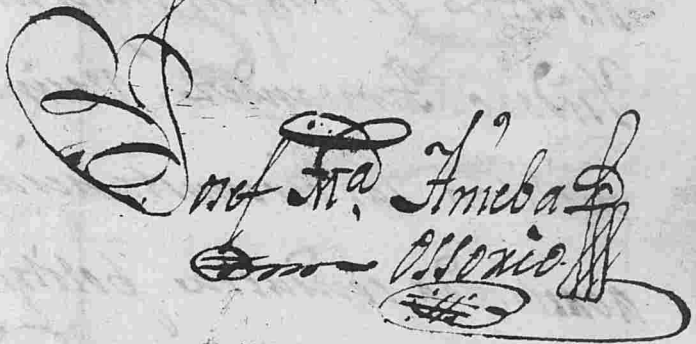 Josef Ma. Anieba
Ossorio